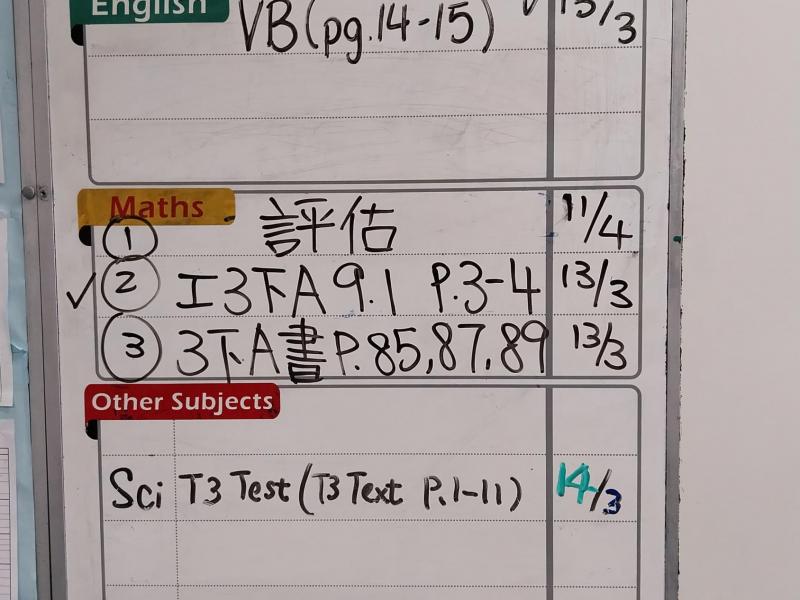 English
VB (pg.14-15) 15/3
Maths
① 評估 11/4
✓ ② 工3下A 9.1 P.3-4 13/3
③ 3下A書 P.85,87,89 13/3
Other Subjects
Sci T3 Test (T3 Text P.1-11) 14/3